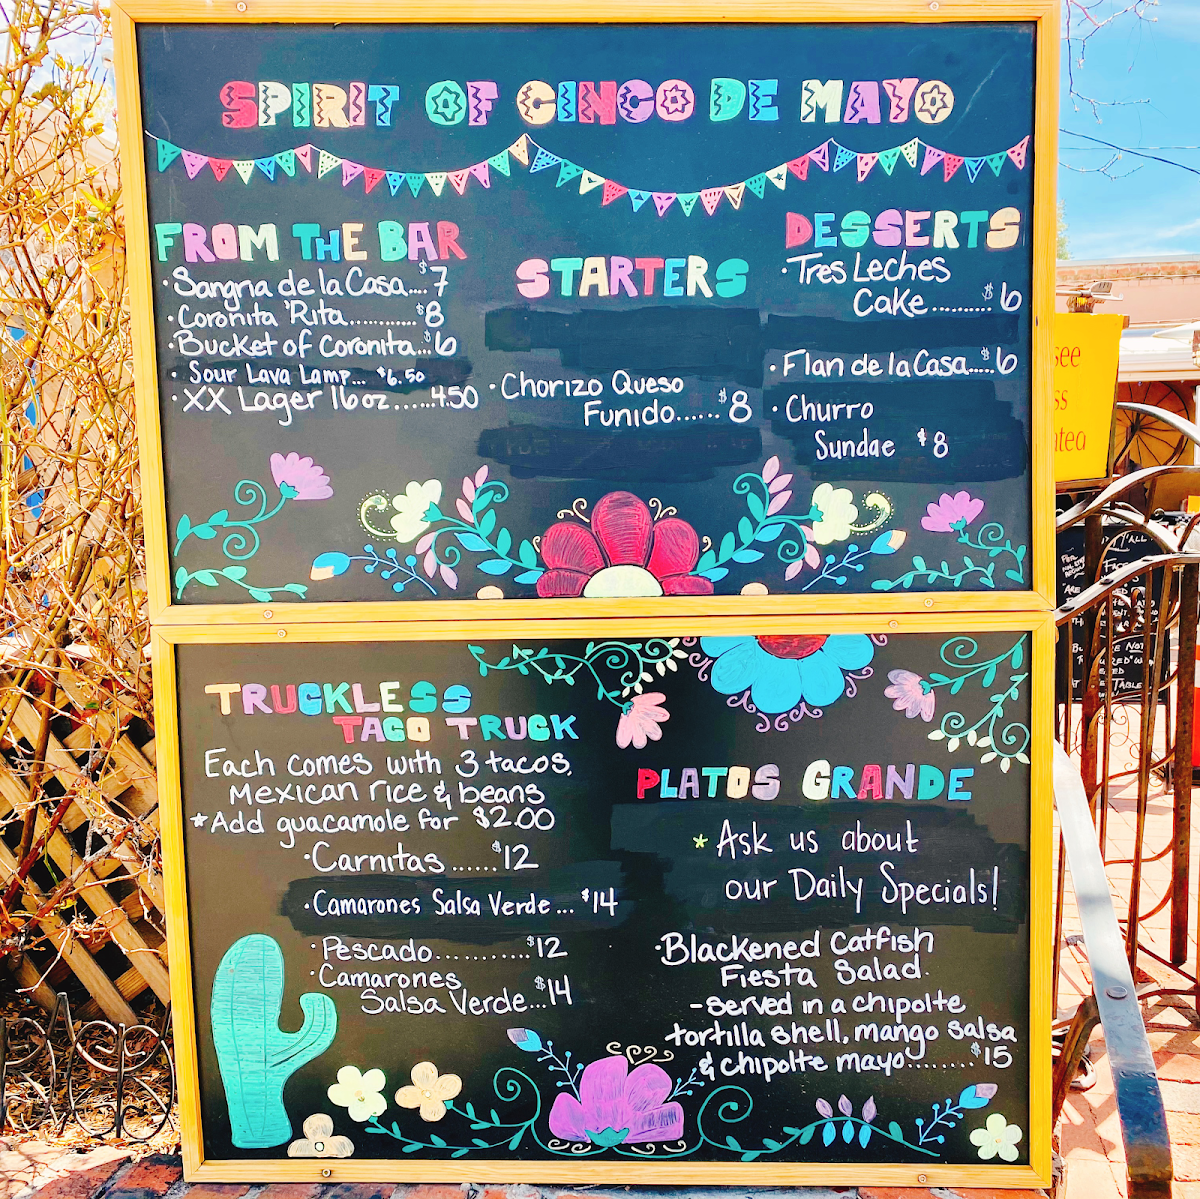 SPIRIT OF CINCO DE MAYO
FROM THE BAR
·Sangria de la Casa....$7
·Coronita 'Rita............$8
·Bucket of Coronita...$6
· Sour Lava Lamp... $6.50
·XX Lager 16oz.......4.50
STARTERS
·Chorizo Queso
Funido......$8
DESSERTS
·Tres Leches
Cake..........$6
·Flan de la Casa.....$6
·Churro
Sundae $8
TRUCKLESS
TACO TRUCK
Each comes with 3 tacos,
Mexican rice & beans
*Add guacamole for $2.00
·Carnitas......$12
·Camarones Salsa Verde... $14
·Pescado...........$12
·Camarones
Salsa Verde...$14
PLATOS GRANDE
*Ask us about
our Daily Specials!
·Blackened Catfish
Fiesta Salad.
-served in a chipolte
tortilla shell, mango salsa
& chipolte mayo........$15